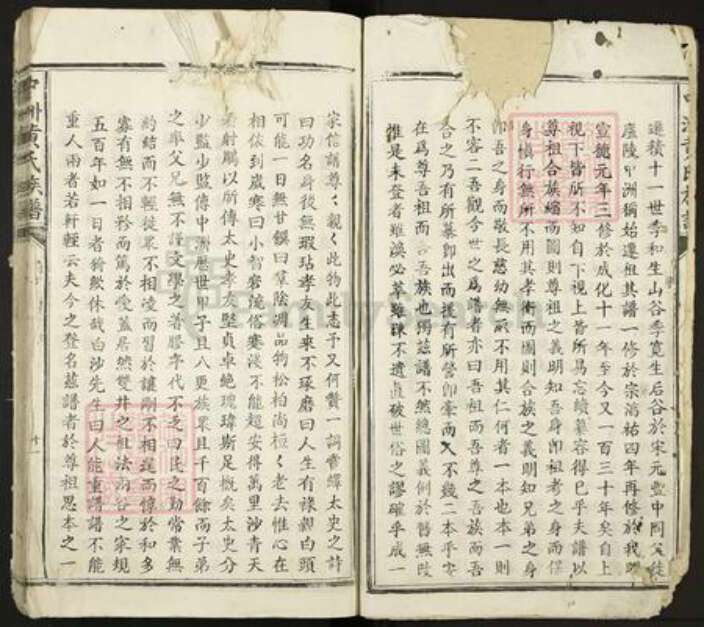 遷積十一世季和生山谷季寬生后谷於宋元豐中同父徙
廬陵中洲稱始遷祖其譜一修於宋淳祐四年再修於我
宣德元年三修於成化十一年至今又一百三十年矣自上
視下皆所不知自下視上皆所易忘續纂容得已乎夫譜以
尊祖合族縮而圖則尊祖之義明知吾身即祖考之身而保
身慎行無所不用其孝衡而圖則合族之義明知兄弟之身
即吾之身而敬長慈幼無所不用其仁何者一本也本一則
不容二吾觀今世之為譜者亦曰吾祖而吾尊之吾族而吾
合之乃有所慕即出而援有所營即棄而入不幾二本乎安
在為尊吾祖而合吾族也獨茲譜不然總圖義例於舊無改
惟是未登者雖渙必萃雖疎不遺直破世俗之謬確乎成一
家信譜尊〻親〻此物此志予又何贊一詞嘗繹太史之詩
曰功名身後無瑕玷孝友生來不琢磨曰人生有祿親白頭
可能一日無甘饌曰羣陰凋品物松柏尚桓〻老去惟心在
相依到歲寒曰小智窘淺俗寒淺不能超安得萬里沙青天
看射鵰以所傳太史孝友堅貞卓絕瑰瑋斯足概矣太史分
少監少監傳中洲歷世甲子且八更族眾且千百餘而子弟
之率父兄無不謹文學之著膠序代不乏曰民之勤常業無
約結而不輕徙眾不相凌而習於讓剛不相違而惇於和多
寡有無不相矜而篤於愛蓋居然雙井之祖法兩谷之家規
五百年如一日者猗歟休哉白沙先生曰人能重譜譜不能
重人兩者若軒輊云夫今之登名茲譜者於尊祖思本之一
中洲黄氏族譜